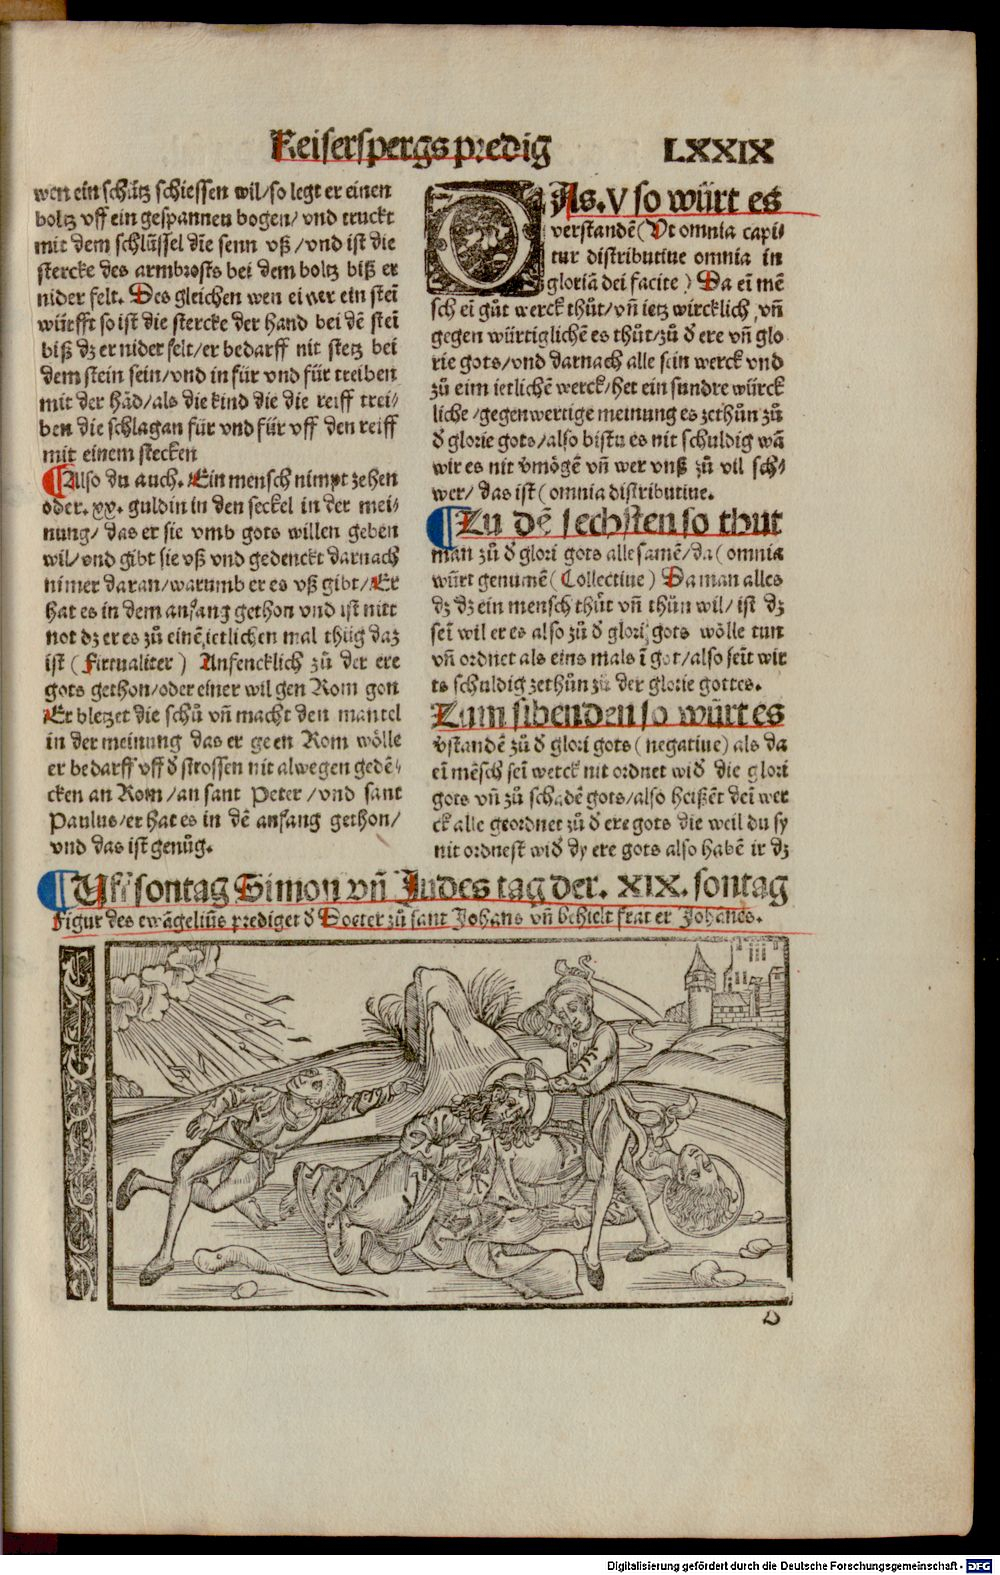 Keiserspergs predig LXXIX
wen ein schütz schiessen wil/so legt er einen
boltz vff ein gespannen bogen/vnd truckt
mit dem schlüssel die senn vß/vnd ist die
stercke des armbrosts bei dem boltz biß er
nider felt. Des gleichen wen einer ein stei̅
würfft so ist die stercke der hand bei de̅ stei̅
biß dz er nider felt/er bedarff nit stetz bei
dem stein sein/vnd in für vnd für treiben
mit der ha̅d/als die kind die die reiff trei⸗
ben die schlagan für vnd für vff den reiff
mit einem stecken
¶Also du auch. Ein mensch nimpt zehen
oder. xx. guldin in den seckel in der mei⸗
nung/das er sie vmb gots willen geben
wil/vnd gibt sie vß vnd gedenckt darnach
nimer daran/warumb er es vß gibt/Er
hat es in dem anfang gethon vnd ist nitt
not dz er es zů eine̅ ietlichen mal thüg daz
ist (Firtualiter) Anfencklich zů der ere
gots gethon/oder einer wil gen Rom gon
Er bletzet die schů vn̅ macht den mantel
in der meinung das er geen Rom wölle
er bedarff vff d̓ strossen nit alwegen gede̅⸗
cken an Rom/an sant Peter/vnd sant
Paulus/er hat es in de̅ anfang gethon/
vnd das ist genůg.
DAs. V so würt es
verstande̅ (Vt omnia capi⸗
tur distributiue omnia in
gloria̅ dei facite) Da ei̅ me̅
sch ei̅ gůt werck thůt/vn̅ ietz wircklich vn̅
gegen würtigliche̅ es thůt/zů d̓ ere vn̅ glo
rie gots/vnd darnach alle sein werck vnd
zů eim ietliche̅ werck/het ein sundre würck
liche/gegenwertige meinung es zethůn zů
d̓ glorie gots/also bistu es nit schuldig wa̅
wir es nit v̓möge̅ vn̅ wer vnß zů vil sch⸗
wer/das ist (omnia distributiue.
¶Zu de̅ sechsten so thut
man zů d̓ glori gots alle same̅/da (omnia
würt genume̅ (Collectiue) Da man alles
dz dz ein mensch thůt vn̅ thůn wil/ist dz
sei̅ wil er es also zů d̓ glori gots wölle tun
vn̅ ordnet als eins mals i̅ got/also sei̅t wir
ts schuldig zethůn zů der glorie gottes.
Zum sibenden so würt es
v̓stande̅ zů d̓ glori gots (negatiue) als da
ei̅ me̅sch sei̅ werck nit ordnet wid̓ die glori
gots vn̅ zů schade̅ gots/also heiße̅t dei̅ wer
ck alle geordnet zů d̓ ere gots die weil du sy
nit ordnest wid̓ dy ere gots also habe̅ ir dz
¶Uff sontag Simon vn̅ Judes tag der. XIX. sontag
Figur des ewa̅gelius prediget d̓ Docter zů sant Johans vn̅ behielt frater Johanes.
D
Digitalisierung gefördert durch die Deutsche Forschungsgemeinschaft - DFG